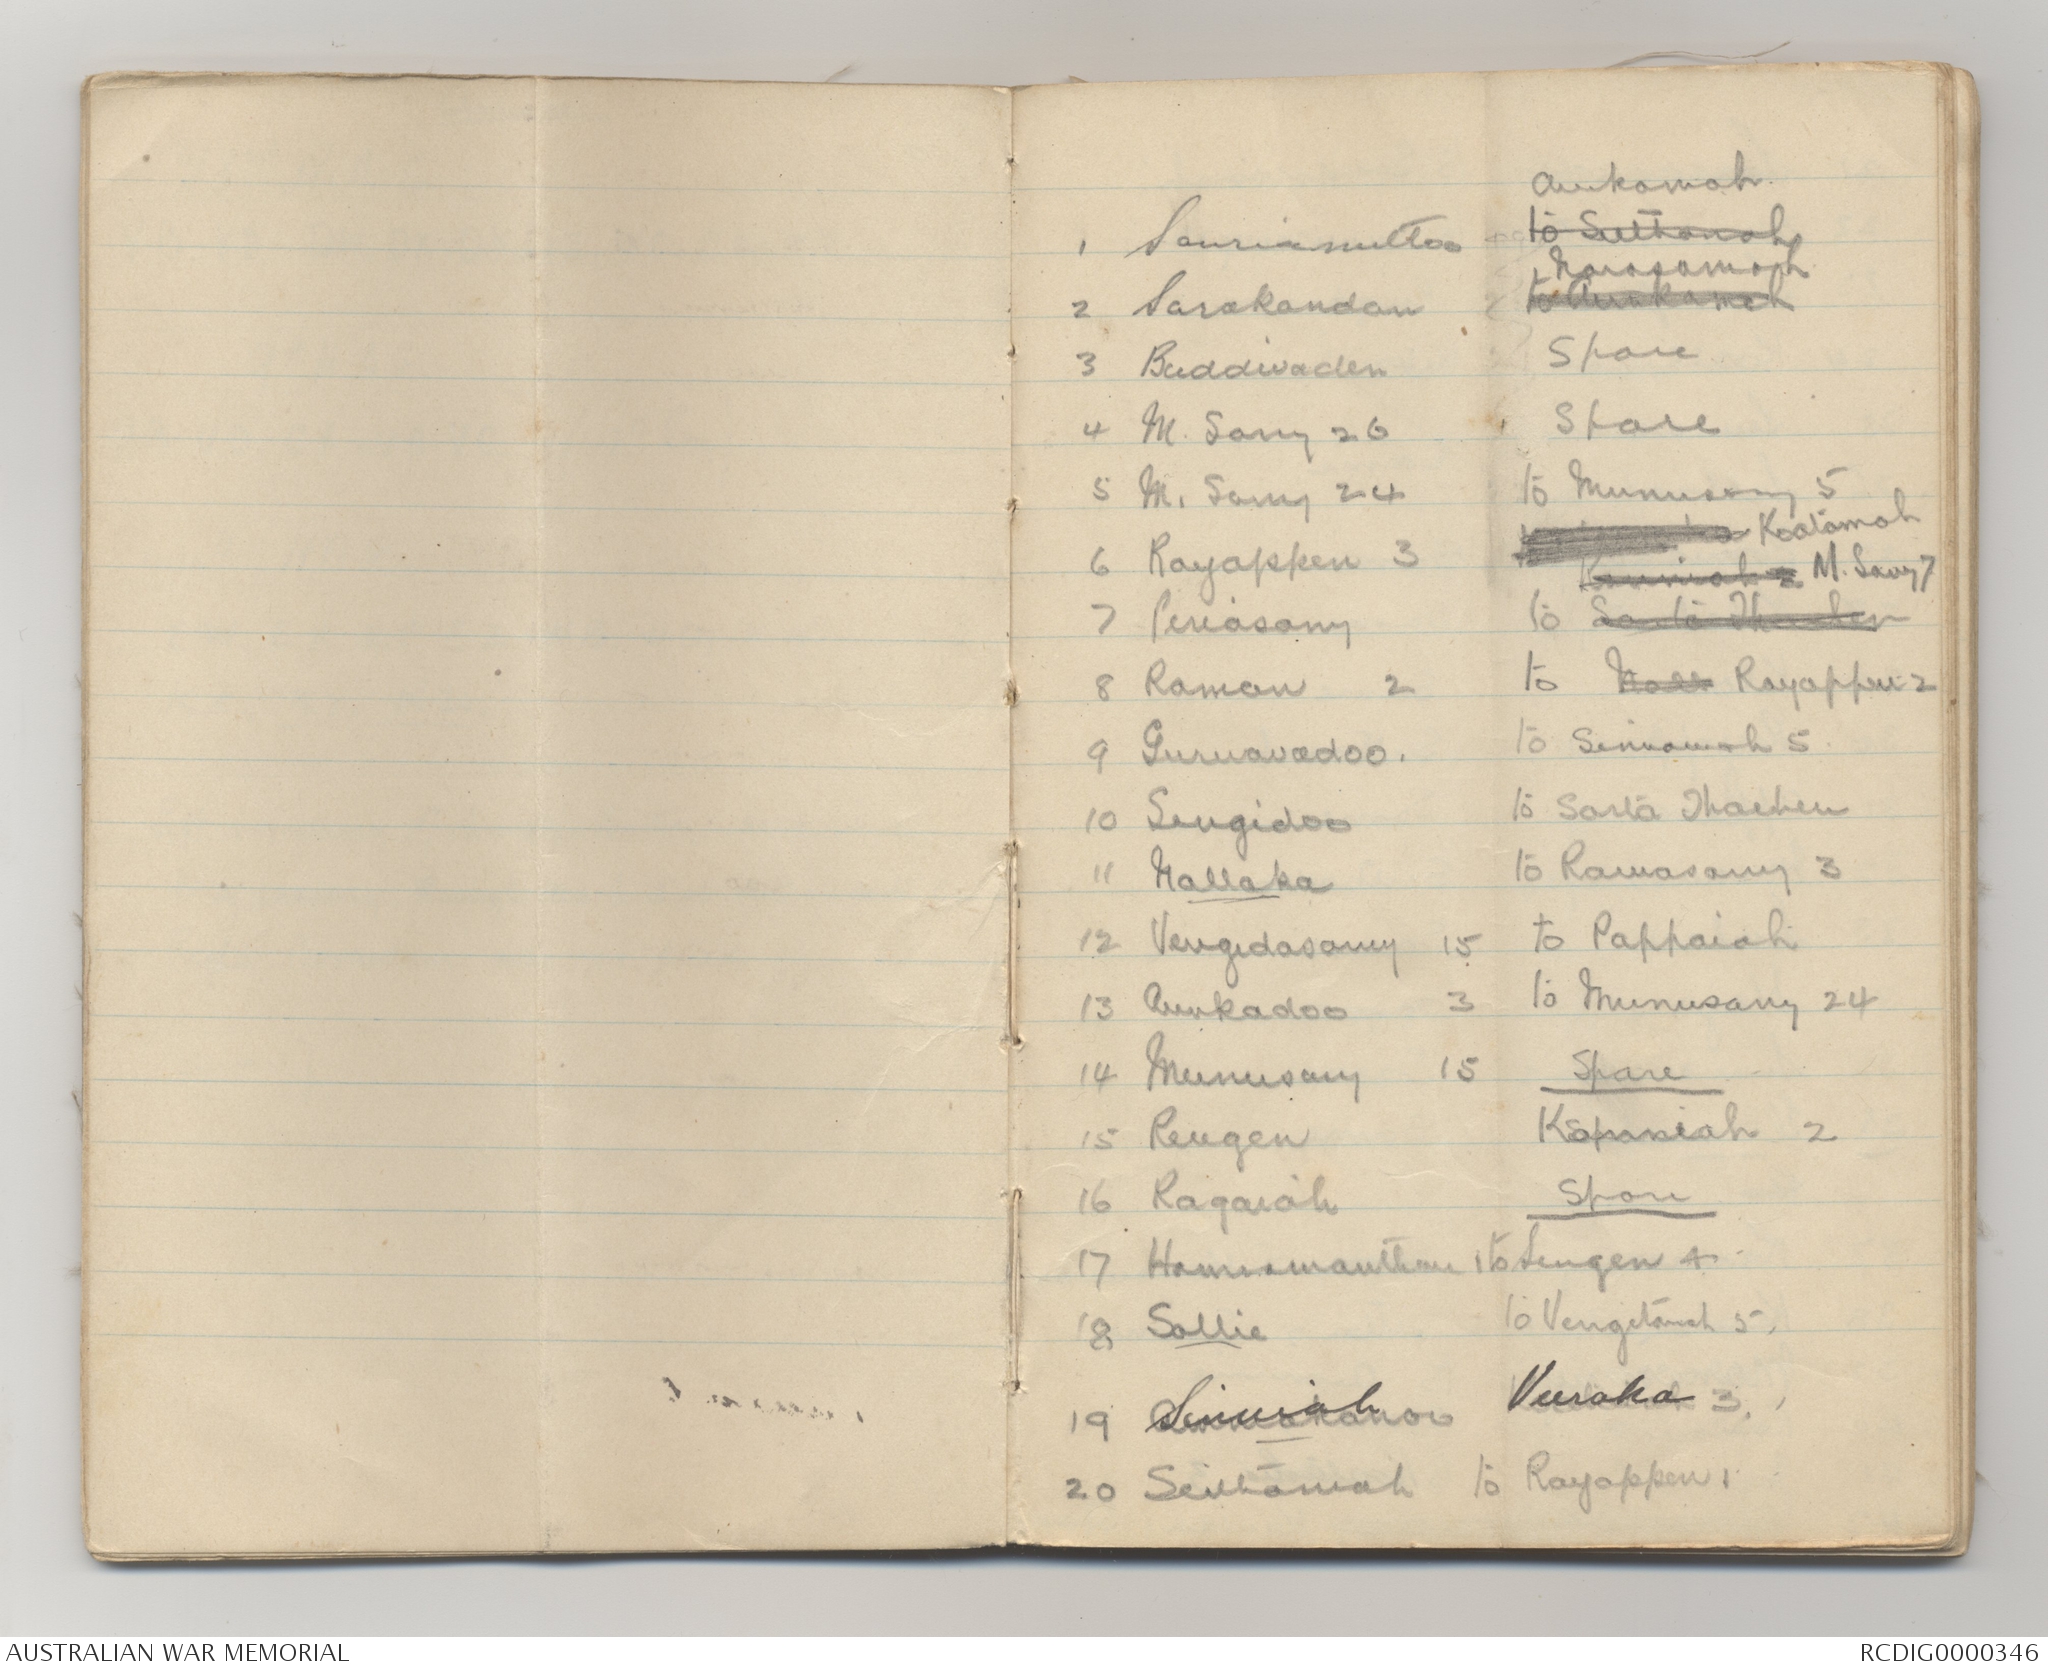 Aukamah
1 Souriamuttoo to Seethamah
Narasamah
2 Sarakandan to Aunkamah
3 Buddivaden Spare
4 M. Samy 26 Spare
5 M. Samy 24 to Munusamy 5
Kootamah
6 Rayappen 3
M. Samy 7
7 Periasamy to Santa Thachen
8 Raman 2 to Nall Rayappen 2
9 Guruavadoo. to Sinnamah 5
10 Sengidoo to Santa Thachen
11 Nallaka to Ramasamy 3
12 Vengidasamy 15 to Pappaiah
13 Aunkadoo 3 to Munusamy 24
14 Munusamy 15 Spare
15 Rengen Kopaniah 2
16 Ragaiah Spare
17 to Sengen 4
18 Sallie to Vengetamah 5
19 Sinniah Veeraka 3
20 Seethamah to Rayappen 1
AUSTRALIAN WAR MEMORIAL
RCDIG0000346